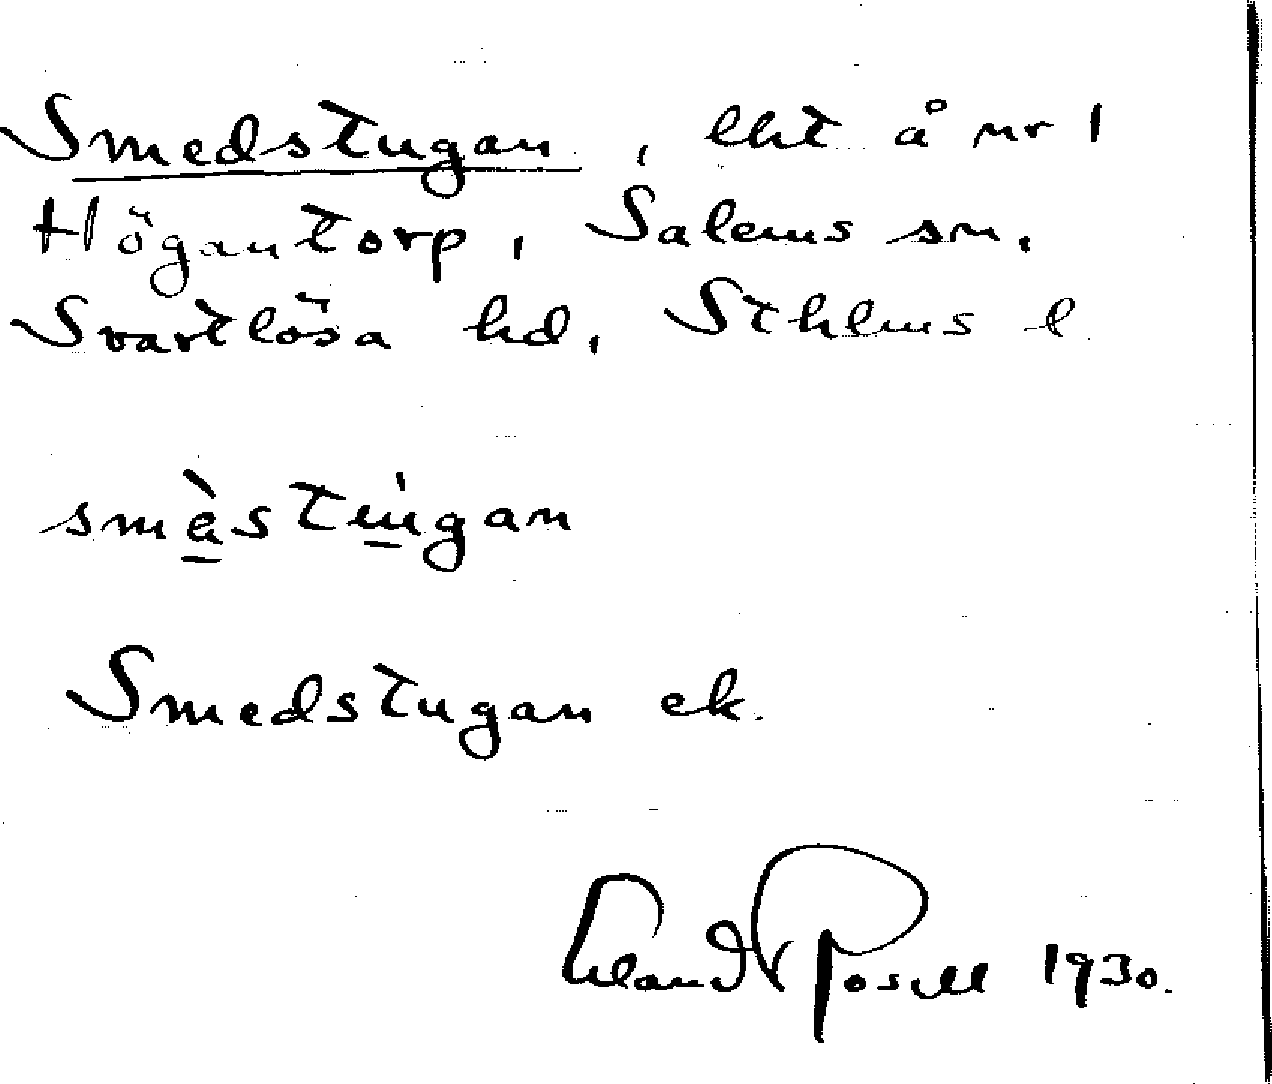 Smedstugan, lht å nr 1
Högantorp, Salems sn,
Svartlösa hd, Sthlms l
smὰstùgan
Smedstugan ek.
Erland Rosell 1930.